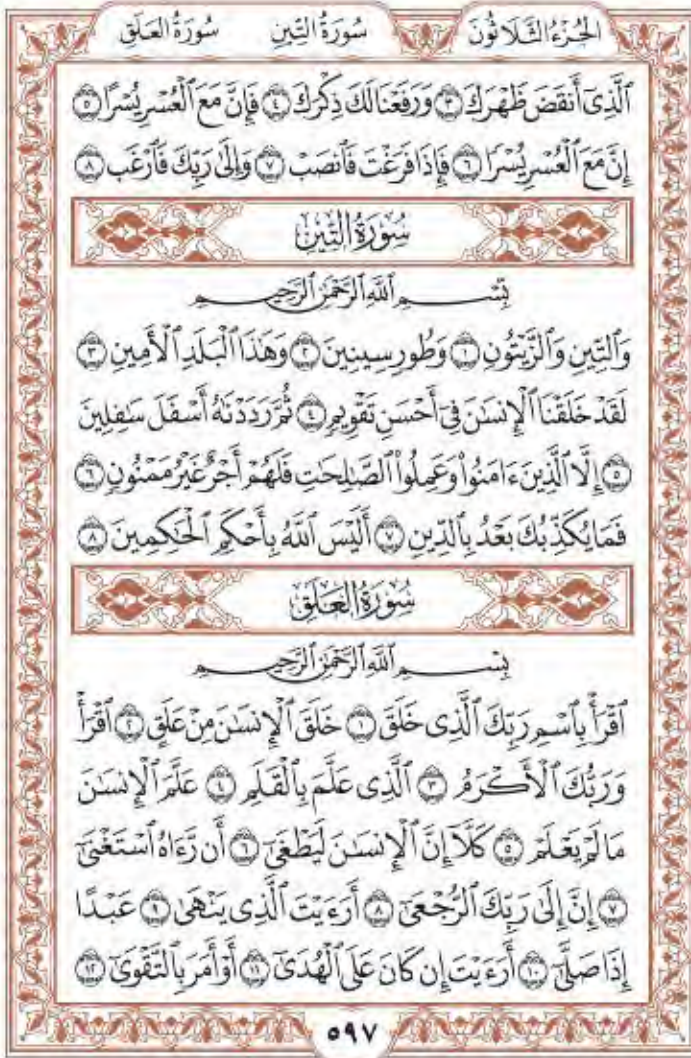 الجُزْءُ الثَّلَاثُونَ سُورَةُ التِّينِ سُورَةُ العَلَقِ
ٱلَّذِىٓ أَنقَضَ ظَهْرَكَ ٣ وَرَفَعْنَا لَكَ ذِكْرَكَ ٤ فَإِنَّ مَعَ ٱلْعُسْرِ يُسْرًا ٥
إِنَّ مَعَ ٱلْعُسْرِ يُسْرًا ٦ فَإِذَا فَرَغْتَ فَٱنصَبْ ٧ وَإِلَىٰ رَبِّكَ فَٱرْغَب ٨
سُورَةُ التِّينِ
بِسْمِ ٱللَّهِ ٱلرَّحْمَٰنِ ٱلرَّحِيمِ
وَٱلتِّينِ وَٱلزَّيْتُونِ ١ وَطُورِ سِينِينَ ٢ وَهَٰذَا ٱلْبَلَدِ ٱلْأَمِينِ ٣
لَقَدْ خَلَقْنَا ٱلْإِنسَٰنَ فِىٓ أَحْسَنِ تَقْوِيمٍ ٤ ثُمَّ رَدَدْنَٰهُ أَسْفَلَ سَٰفِلِينَ
٥ إِلَّا ٱلَّذِينَ ءَامَنُوا۟ وَعَمِلُوا۟ ٱلصَّٰلِحَٰتِ فَلَهُمْ أَجْرٌ غَيْرُ مَمْنُونٍ ٦
فَمَا يُكَذِّبُكَ بَعْدُ بِٱلدِّينِ ٧ أَلَيْسَ ٱللَّهُ بِأَحْكَمِ ٱلْحَٰكِمِينَ ٨
سُورَةُ العَلَقِ
بِسْمِ ٱللَّهِ ٱلرَّحْمَٰنِ ٱلرَّحِيمِ
ٱقْرَأْ بِٱسْمِ رَبِّكَ ٱلَّذِى خَلَقَ ١ خَلَقَ ٱلْإِنسَٰنَ مِنْ عَلَقٍ ٢ ٱقْرَأْ
وَرَبُّكَ ٱلْأَكْرَمُ ٣ ٱلَّذِى عَلَّمَ بِٱلْقَلَمِ ٤ عَلَّمَ ٱلْإِنسَٰنَ
مَا لَمْ يَعْلَمْ ٥ كَلَّآ إِنَّ ٱلْإِنسَٰنَ لَيَطْغَىٰٓ ٦ أَن رَّءَاهُ ٱسْتَغْنَىٰٓ
٧ إِنَّ إِلَىٰ رَبِّكَ ٱلرُّجْعَىٰٓ ٨ أَرَءَيْتَ ٱلَّذِى يَنْهَىٰ ٩ عَبْدًا
إِذَا صَلَّىٰٓ ١٠ أَرَءَيْتَ إِن كَانَ عَلَى ٱلْهُدَىٰٓ ١١ أَوْ أَمَرَ بِٱلتَّقْوَىٰٓ ١٢
٥٩٧